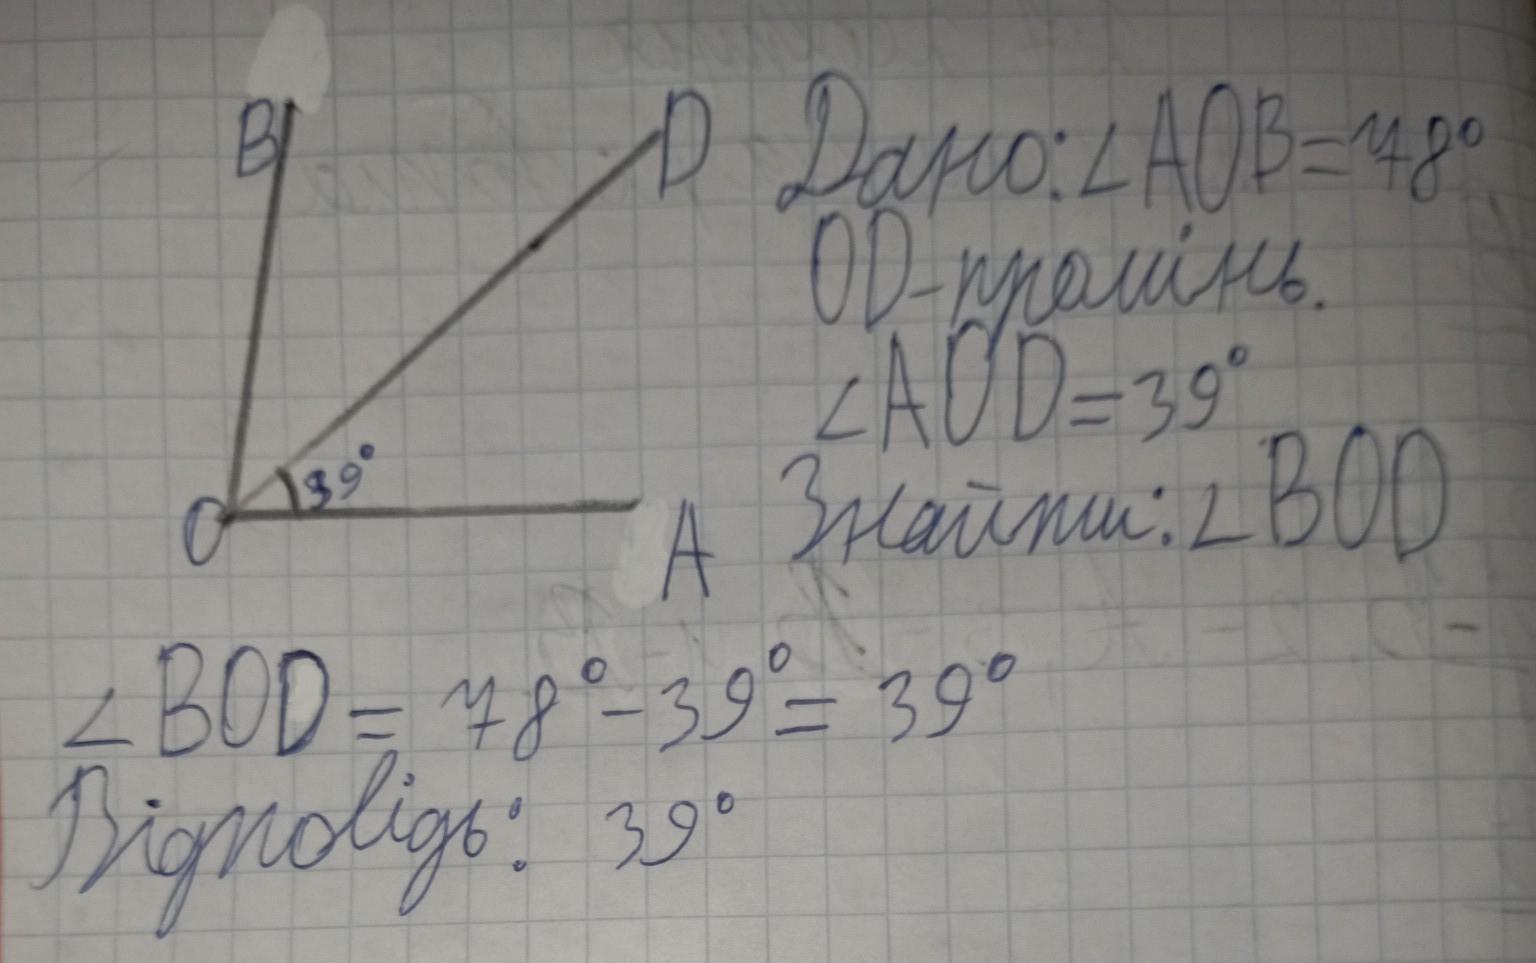 B
D
Дано: ∠AOB=78°
OD-промінь.
∠AOD=39°
39°
O
A
Знайти: ∠BOD
∠BOD = 78° - 39° = 39°
Відповідь: 39°